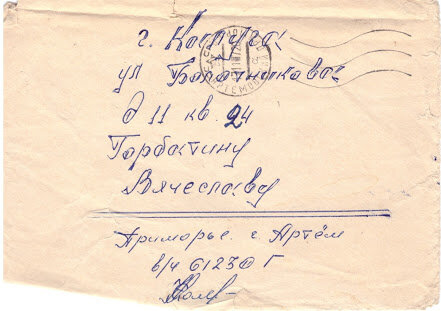 г. Калуга
ул Болотникова
д 11 кв. 24
Вячеславу
Приморье. г. Артём
в/ч 61230 Г